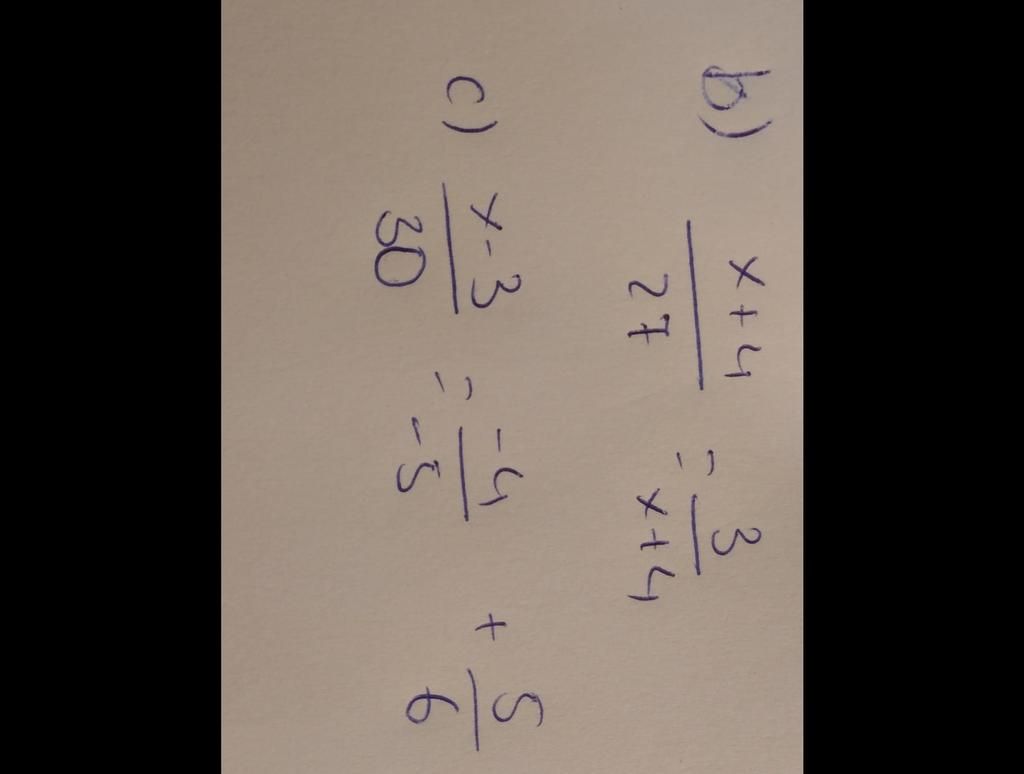 b) \frac{x+4}{27} = \frac{3}{x+4}
c) \frac{x-3}{30} = \frac{-4}{-5} + \frac{5}{6}